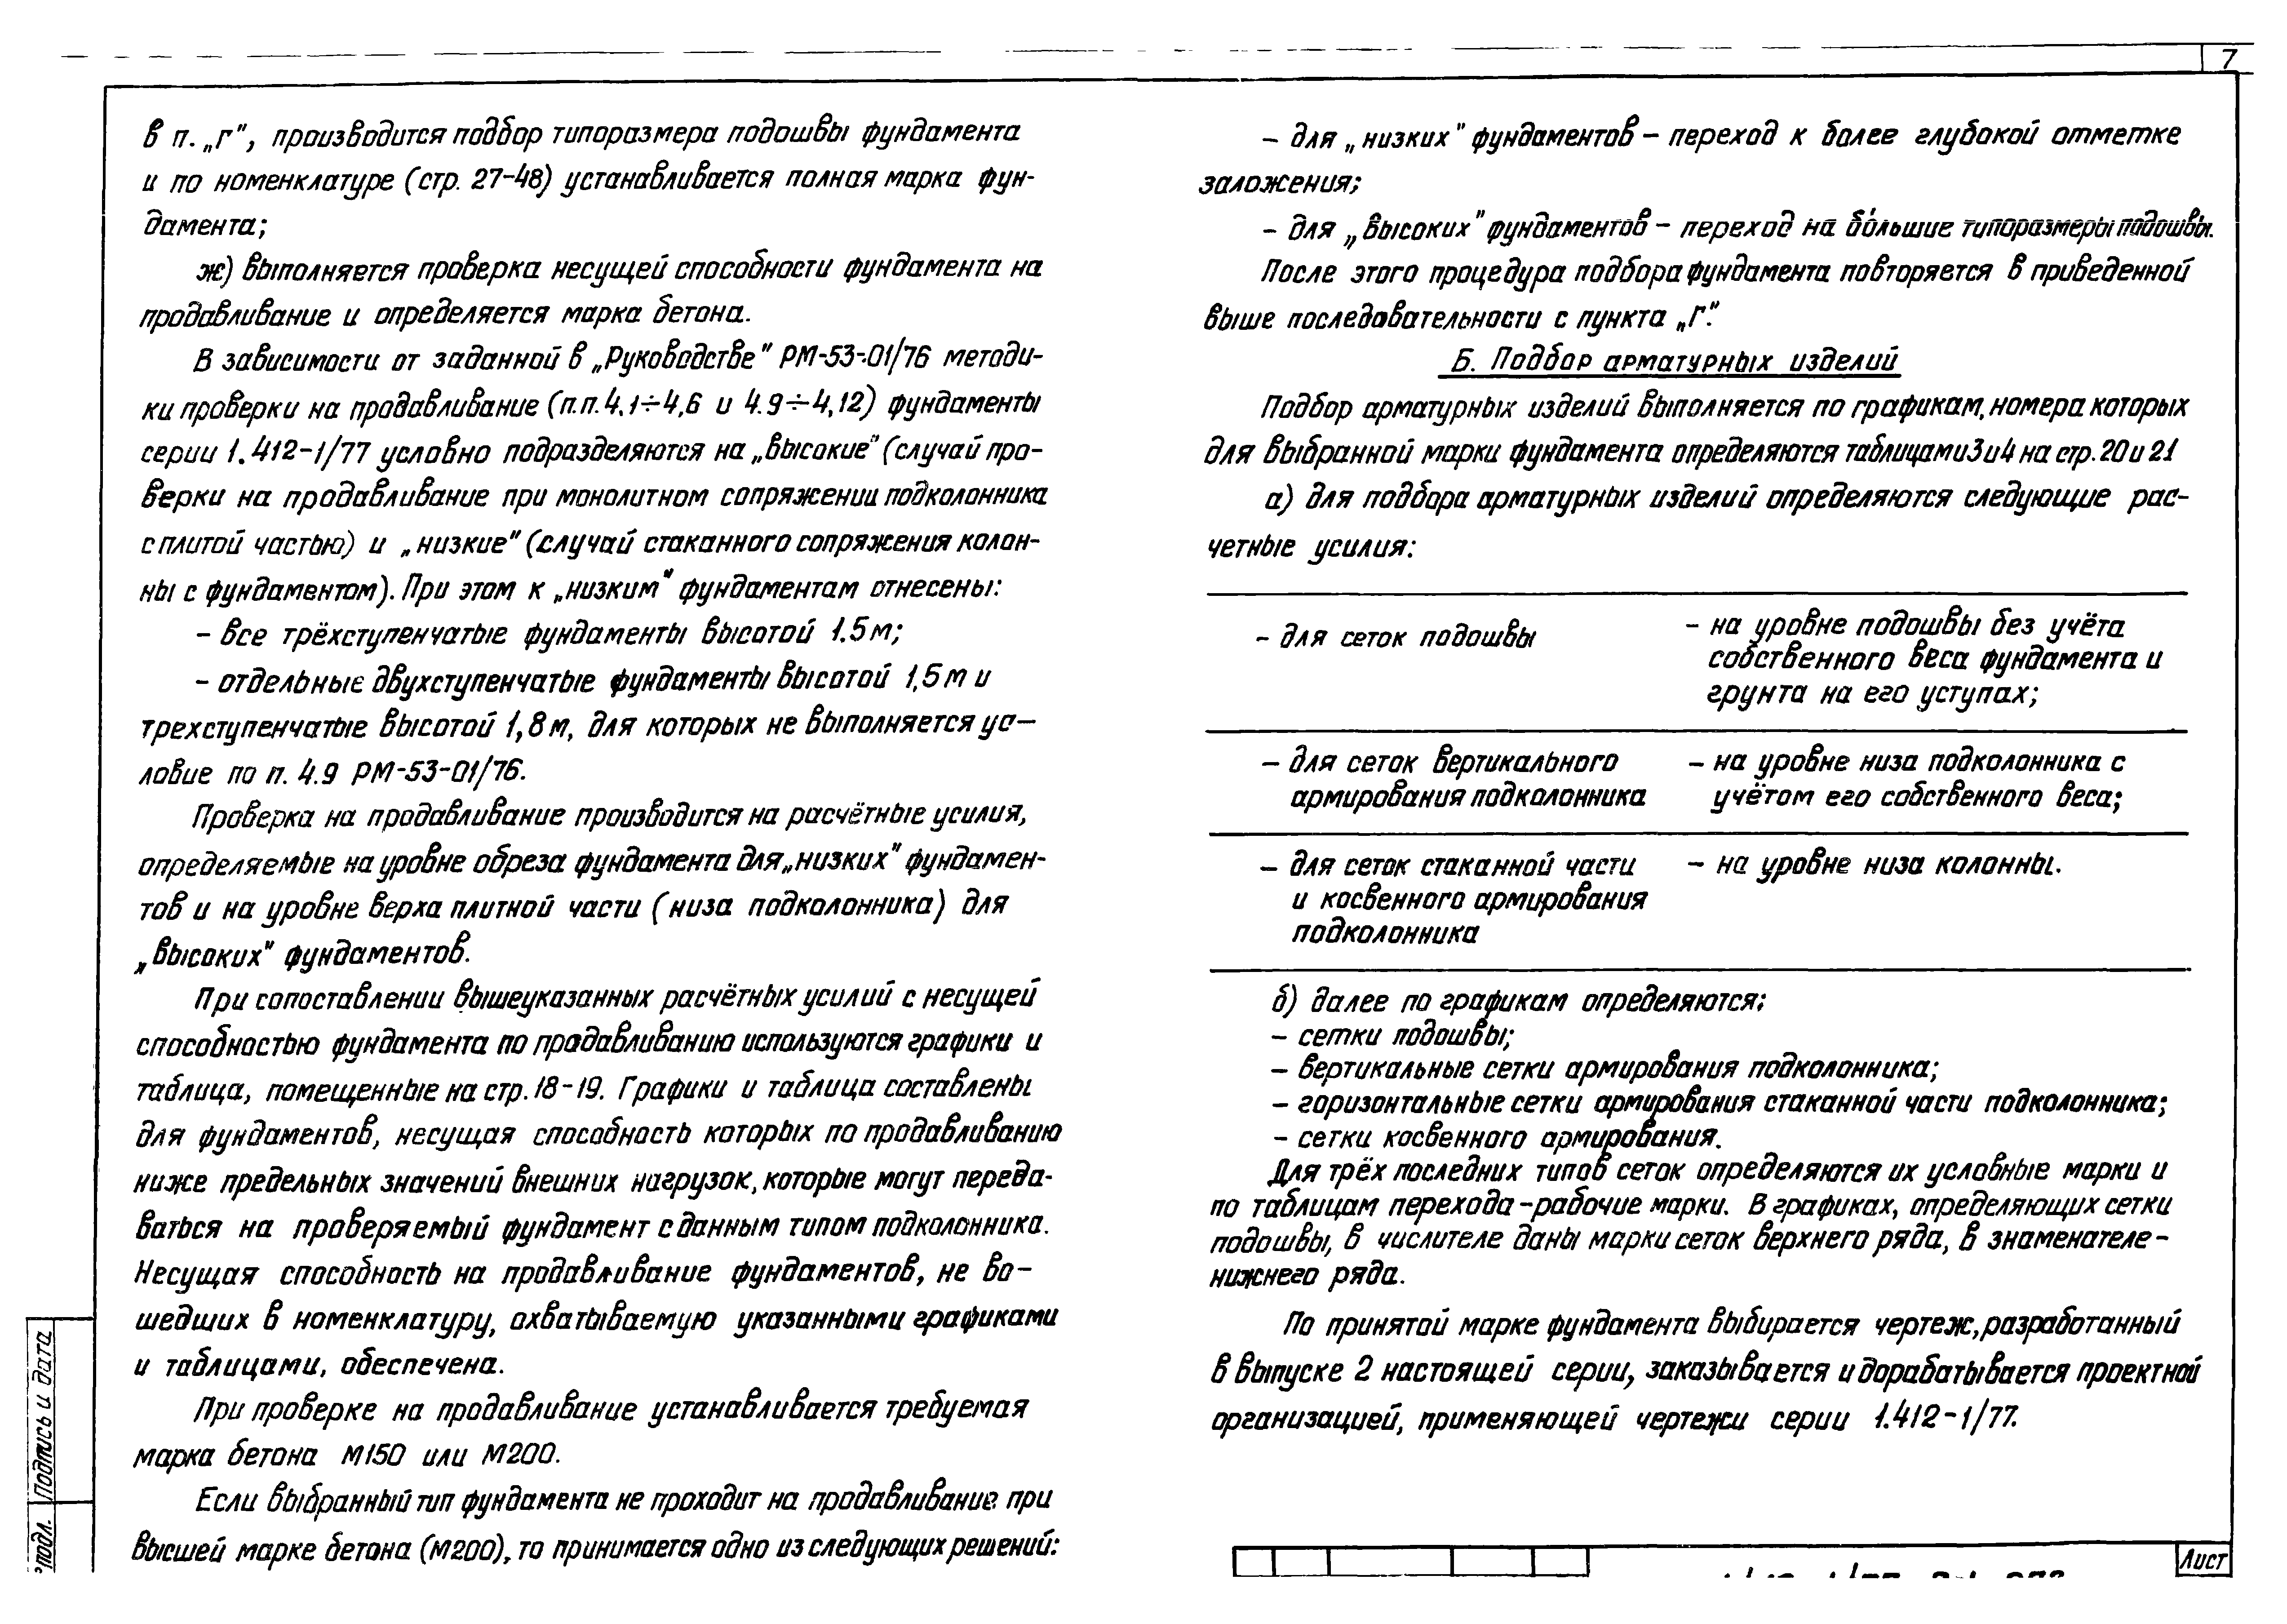 7
в п. „г", производится подбор типоразмера подошвы фундамента
и по номенклатуре (стр. 27-48) устанавливается полная марка фун-
дамента;
ж) выполняется проверка несущей способности фундамента на
продавливание и определяется марка бетона.
В зависимости от заданной в „Руководстве" РМ-53-01/76 методи-
ки проверки на продавливание (п.п. 4.1÷4,6 и 4.9÷4,12) фундаменты
серии 1.412-1/77 условно подразделяются на „высокие" (случай про-
верки на продавливание при монолитном сопряжении подколонника
с плитой частью) и „низкие" (случай стаканного сопряжения колон-
ны с фундаментом). При этом к „низким" фундаментам отнесены:
- все трёхступенчатые фундаменты высотой 1.5 м;
- отдельные двухступенчатые фундаменты высотой 1,5 м и
трехступенчатые высотой 1,8 м, для которых не выполняется ус-
ловие по п. 4.9 РМ-53-01/76.
Проверка на продавливание производится на расчётные усилия,
определяемые на уровне обреза фундамента для „низких" фундамен-
тов и на уровне верха плитной части (низа подколонника) для
„высоких" фундаментов.
При сопоставлении вышеуказанных расчётных усилий с несущей
способностью фундамента по продавливанию используются графики и
таблица, помещенные на стр. 18-19. Графики и таблица составлены
для фундаментов, несущая способность которых по продавливанию
ниже предельных значений внешних нагрузок, которые могут переда-
ваться на проверяемый фундамент с данным типом подколонника.
Несущая способность на продавливание фундаментов, не во-
шедших в номенклатуру, охватываемую указанными графиками
и таблицами, обеспечена.
При проверке на продавливание устанавливается требуемая
марка бетона М150 или М200.
Если выбранный тип фундамента не проходит на продавливание при
высшей марке бетона (М200), то принимается одно из следующих решений:
- для „низких" фундаментов - переход к более глубокой отметке
заложения;
- для „высоких" фундаментов - переход на бо́льшие типоразмеры подошвы.
После этого процедура подбора фундамента повторяется в приведенной
выше последовательности с пункта „г".
Б. Подбор арматурных изделий
Подбор арматурных изделий выполняется по графикам, номера которых
для выбранной марки фундамента определяются таблицами 3 и 4 на стр. 20 и 21
а) для подбора арматурных изделий определяются следующие рас-
четные усилия:
- для сеток подошвы
- на уровне подошвы без учёта
собственного веса фундамента и
грунта на его уступах;
- для сеток вертикального
армирования подколонника
- на уровне низа подколонника с
учётом его собственного веса;
- для сеток стаканной части
и косвенного армирования
подколонника
- на уровне низа колонны.
б) далее по графикам определяются:
- сетки подошвы;
- вертикальные сетки армирования подколонника;
- горизонтальные сетки армирования стаканной части подколонника;
- сетки косвенного армирования.
Для трёх последних типов сеток определяются их условные марки и
по таблицам перехода - рабочие марки. В графиках, определяющих сетки
подошвы, в числителе даны марки сеток верхнего ряда, в знаменателе -
нижнего ряда.
По принятой марке фундамента выбирается чертеж, разработанный
в выпуске 2 настоящей серии, заказывается и дорабатывается проектной
организацией, применяющей чертежи серии 1.412-1/77.
Подпись и дата
подл.
Лист